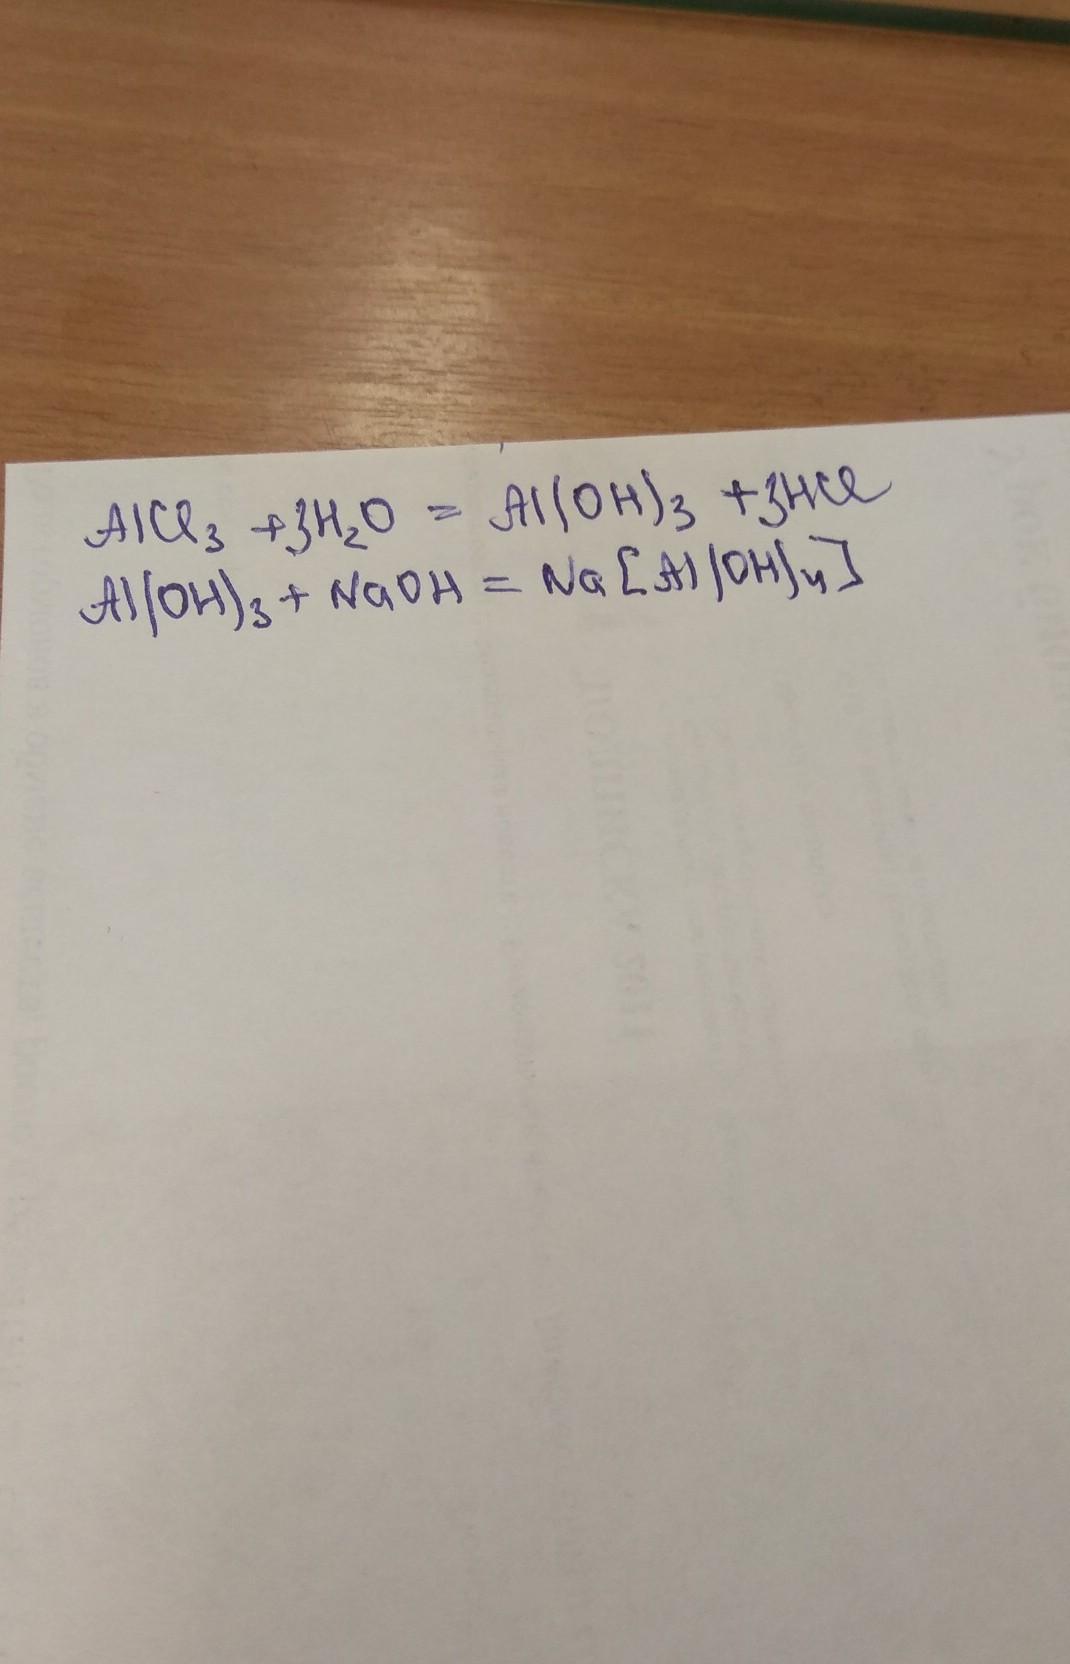 AlCl₃ + 3H₂O = Al(OH)₃ + 3HCl
Al(OH)₃ + NaOH = Na[Al(OH)₄]